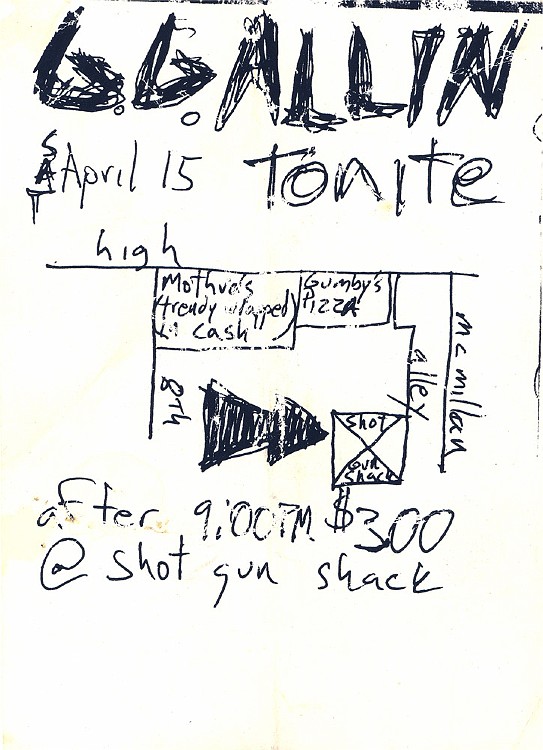 G.G. ALLIN
SAT April 15 TONITE
high
Mothve's
trendy
Lil cash
Gumby's
PIZZA
alley
mc millan
8th
Shot
Gun
Shack
after 9:00PM $3.00
@ shot gun shack